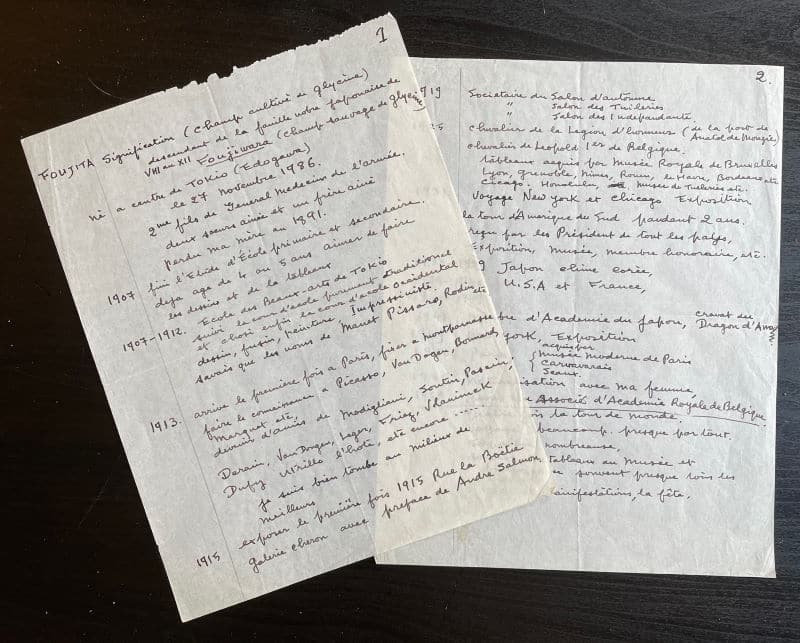 1
FOUJITA Signification (champ cultivé de glycine)
descendent de la famille noble japonaise de
VIII au XII Foujiwara (champ sauvage de glycine)
né a centre de Tokio (Edogawa)
le 27 Novembre 1986.
2me fils de General Medecin de l'armée.
deux soeurs ainée et un frère ainé
perdu ma mère au 1891.
1907 fini l'Etude d'École primaire et secondaire.
deja age de 4 au 5 ans aimer de faire
les dessins et de la tableau
1907-1912. Ecole des Beaux-arts de Tokio
suivi la cour d'acole purement traditionel
et choisi enfin la cour d'acole occidental
dessin, fusin, peinture, Impressiniste.
savais que les noms de Manet Pissaro, Rodin, etc
1913. arrive le première fois a Paris, fixer a montparnasse
faire le connaissance a Picasso, Van Dogen, Bonnard,
Marquet etc,
devins d'amies de Modigliani, Soutin, Pascin,
Derain, Van Dongen, Leger, Friez, Vlaminck
Dufy Utrillo L'hote, etc encore ........
Je suis bien tombé au milieux de
meilleurs
1915 exposer le première fois 1915 Rue la Boëtie
galerie cheron avec preface de André Salmon,
2.
919 Sociétaire du Salon d'automne
" Salon des Tuileries
" Salon des Independants
25 chevalier de la Legion d'honneur (de la part de
Anatol de Monzie)
chevalier de Leopold 1er de Belgique.
tableaux acquis par Musée Royale de Bruxelles
Lyon, grenoble, Nimes, Rouen, le Havre, Bordeaux etc
chicago. Honolulu, musée de Tuileries etc.
Voyage New york et chicago Exposition
la tour d'Amerique du Sud pandant 2 ans.
reçu par les Président de tout les pays,
Exposition, Musée, membre honoraire, etc.
9 Japon chine corée,
U.S.A et France,
bre d'Academie du Japon, cravat du
Dragon d'Anna
york, Exposition
acquis par
musée moderne de Paris
Carnavarais
Seaux.
isation avec ma femme,
Associé d'Academie Royale de Belgique.
is la tour de monde.
beaucoup. presque par tout.
nombreause,
tableaux au Musée et
souvent presque tois les
anifestations, la fête.